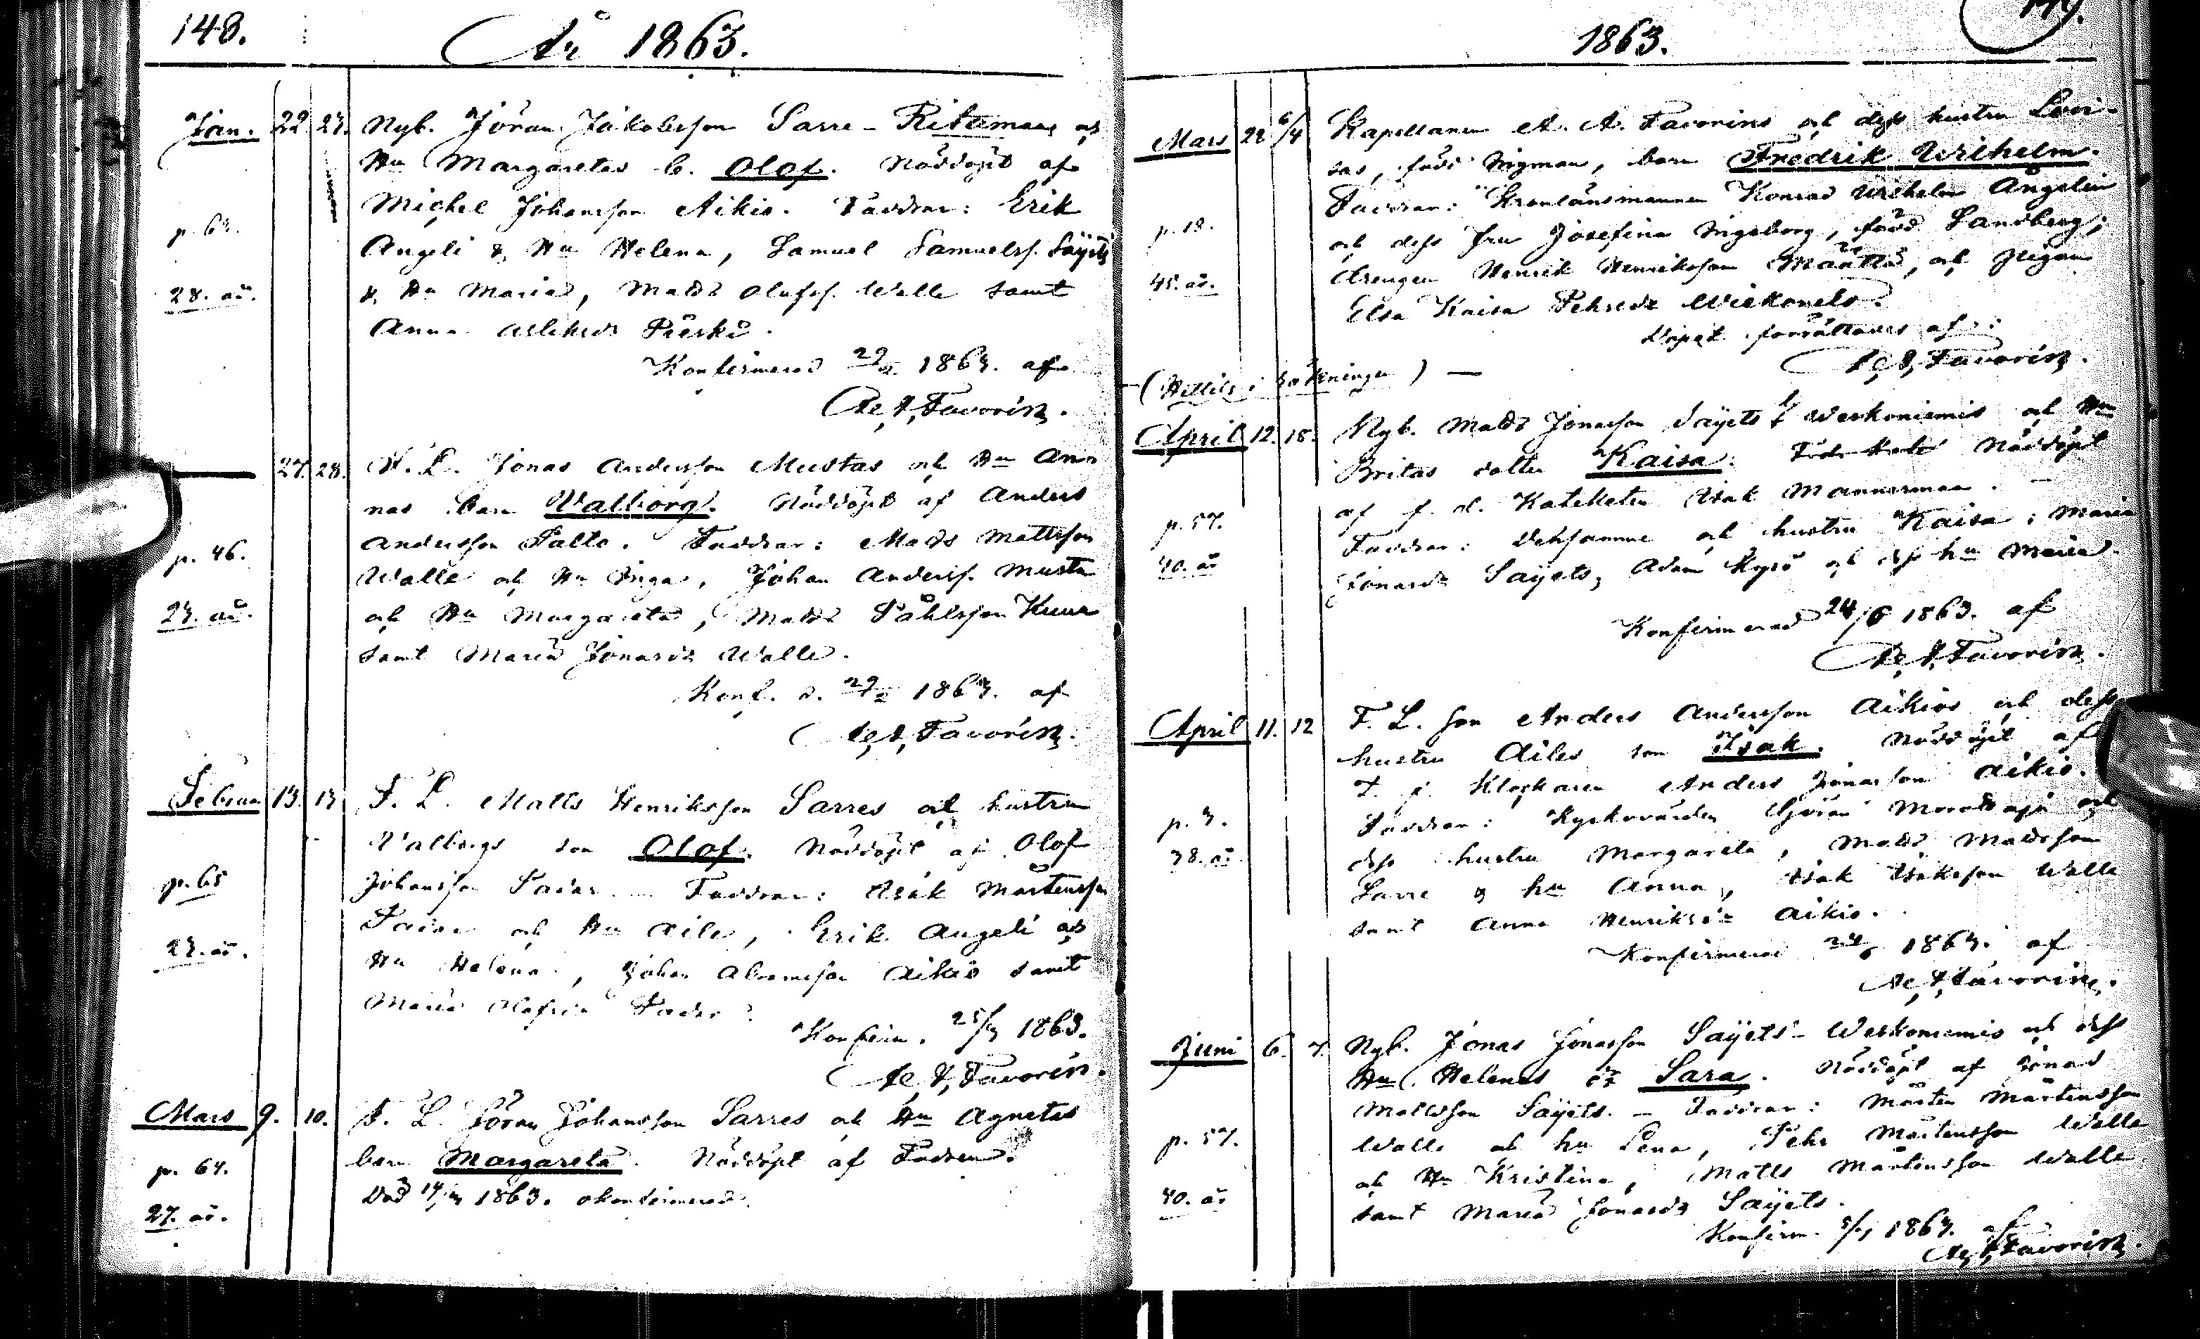 148.
År 1863.
Jan. 22. 27. Nyb. Jöran Jakobsson Sarre - Ritamaas och
Hu Margaretas b. Olof. Nöddöpt af
Michel Johansson Aikio. Faddrar: Erik
p. 63. Angeli & Hu Helena, Samuel Samuelss. Saijets
28. år. & Hu Maria, Mads Olofss. Walle samt
Anna Pieski.
Konfirmerad 1863. af
A. A. Favorin.
27. 28. F. L. Jonas Andersson Mustas och Hu An-
nas barn Walborg. Nöddöpt af Anders
Andersson Palto. Faddrar: Mads Mattsson
p. 46. Walle och Hu Inga, Johan Anderss. Musta
23. år. och Hu Margareta, Mads Påhlsson Kuuva
samt Maria Jonasdr Walle.
Konf. d. 1863. af
A. A. Favorin.
Februari 13. 13 F. L. Matts Henriksson Sarres och hustru
Walborgs son Olof. Nöddöpt af Olof
p. 65 Johansson Faddrar: Isak Mårtensson
och Hu Aile, Erik Angeli och
23. år. Hu Helena, Johan Abramsson Aikio samt
Maria Olofsdr
Konfirm. 25/3 1863.
A. A. Favorin.
Mars 9. 10. F. L. Jöran Johansson Sarres och Hu Agnetas
p. 64. barn Margareta. Nöddöpt af Fadren.
27. år. Död 1863. okonfirmerad.
149.
1863.
Mars 22 6/4 Kapellanen A. A. Favorins och dess hustru Lovi-
sas, född Wigman, barn Fredrik Wilhelm.
Faddrar: Kronlänsmannen Konrad Wilhelm Ångelin
p. 18. och dess fru Josefina Ingeborg, född Sandberg;
45. år. drengen Henrik Henriksson Määttä, och pigan
Elsa Kaisa Pehrsdr Wiekonels.
Dopet förrättades af:
A. A. Favorin.
(Hittils i räkningen)
April 12. 18. Nyb. Mads Jonasson Saijets Weskoniemis och Hu
Britas dotter Kaisa. Nöddöpt
af f. d. Kateketen Isak Mannermaa.
p. 57. Faddrar: Densamme och hustru Kaisa; Maria
40. år Jonasdr Saijets, Adam Kyrö och dess hu Maria.
Konfirmerad 24/6 1863. af
A. A. Favorin.
April 11. 12 F. L. son Anders Andersson Aikios och dess
hustru Ailes son Isak. Nöddöpt af
Klockaren Anders Jonasson Aikio.
p. 3. Faddrar: Kyrkovärden Jöran Morottaja och
38. år. dess hustru Margareta, Mads Madsson
Sarre & hu Anna, Isak Isaksson Walle
samt Anna Henriksdr Aikio.
Konfirmerad 1863. af
A. A. Favorin.
Juni 6. 7. Nyb. Jonas Jonasson Saijets - Weskoniemis och dess
Hu Helenas Sara. Nöddöpt af Jonas
Mattsson Saijets. - Faddrar: Mårten Mårtensson
p. 57. Walle och hu Lena, Pehr Mårtensson Walle
och Hu Kristina, Matts Mårtensson Walle
40. år samt Maria Jonasdr Saijets.
Konfirm. 1863. af
A. A. Favorin.